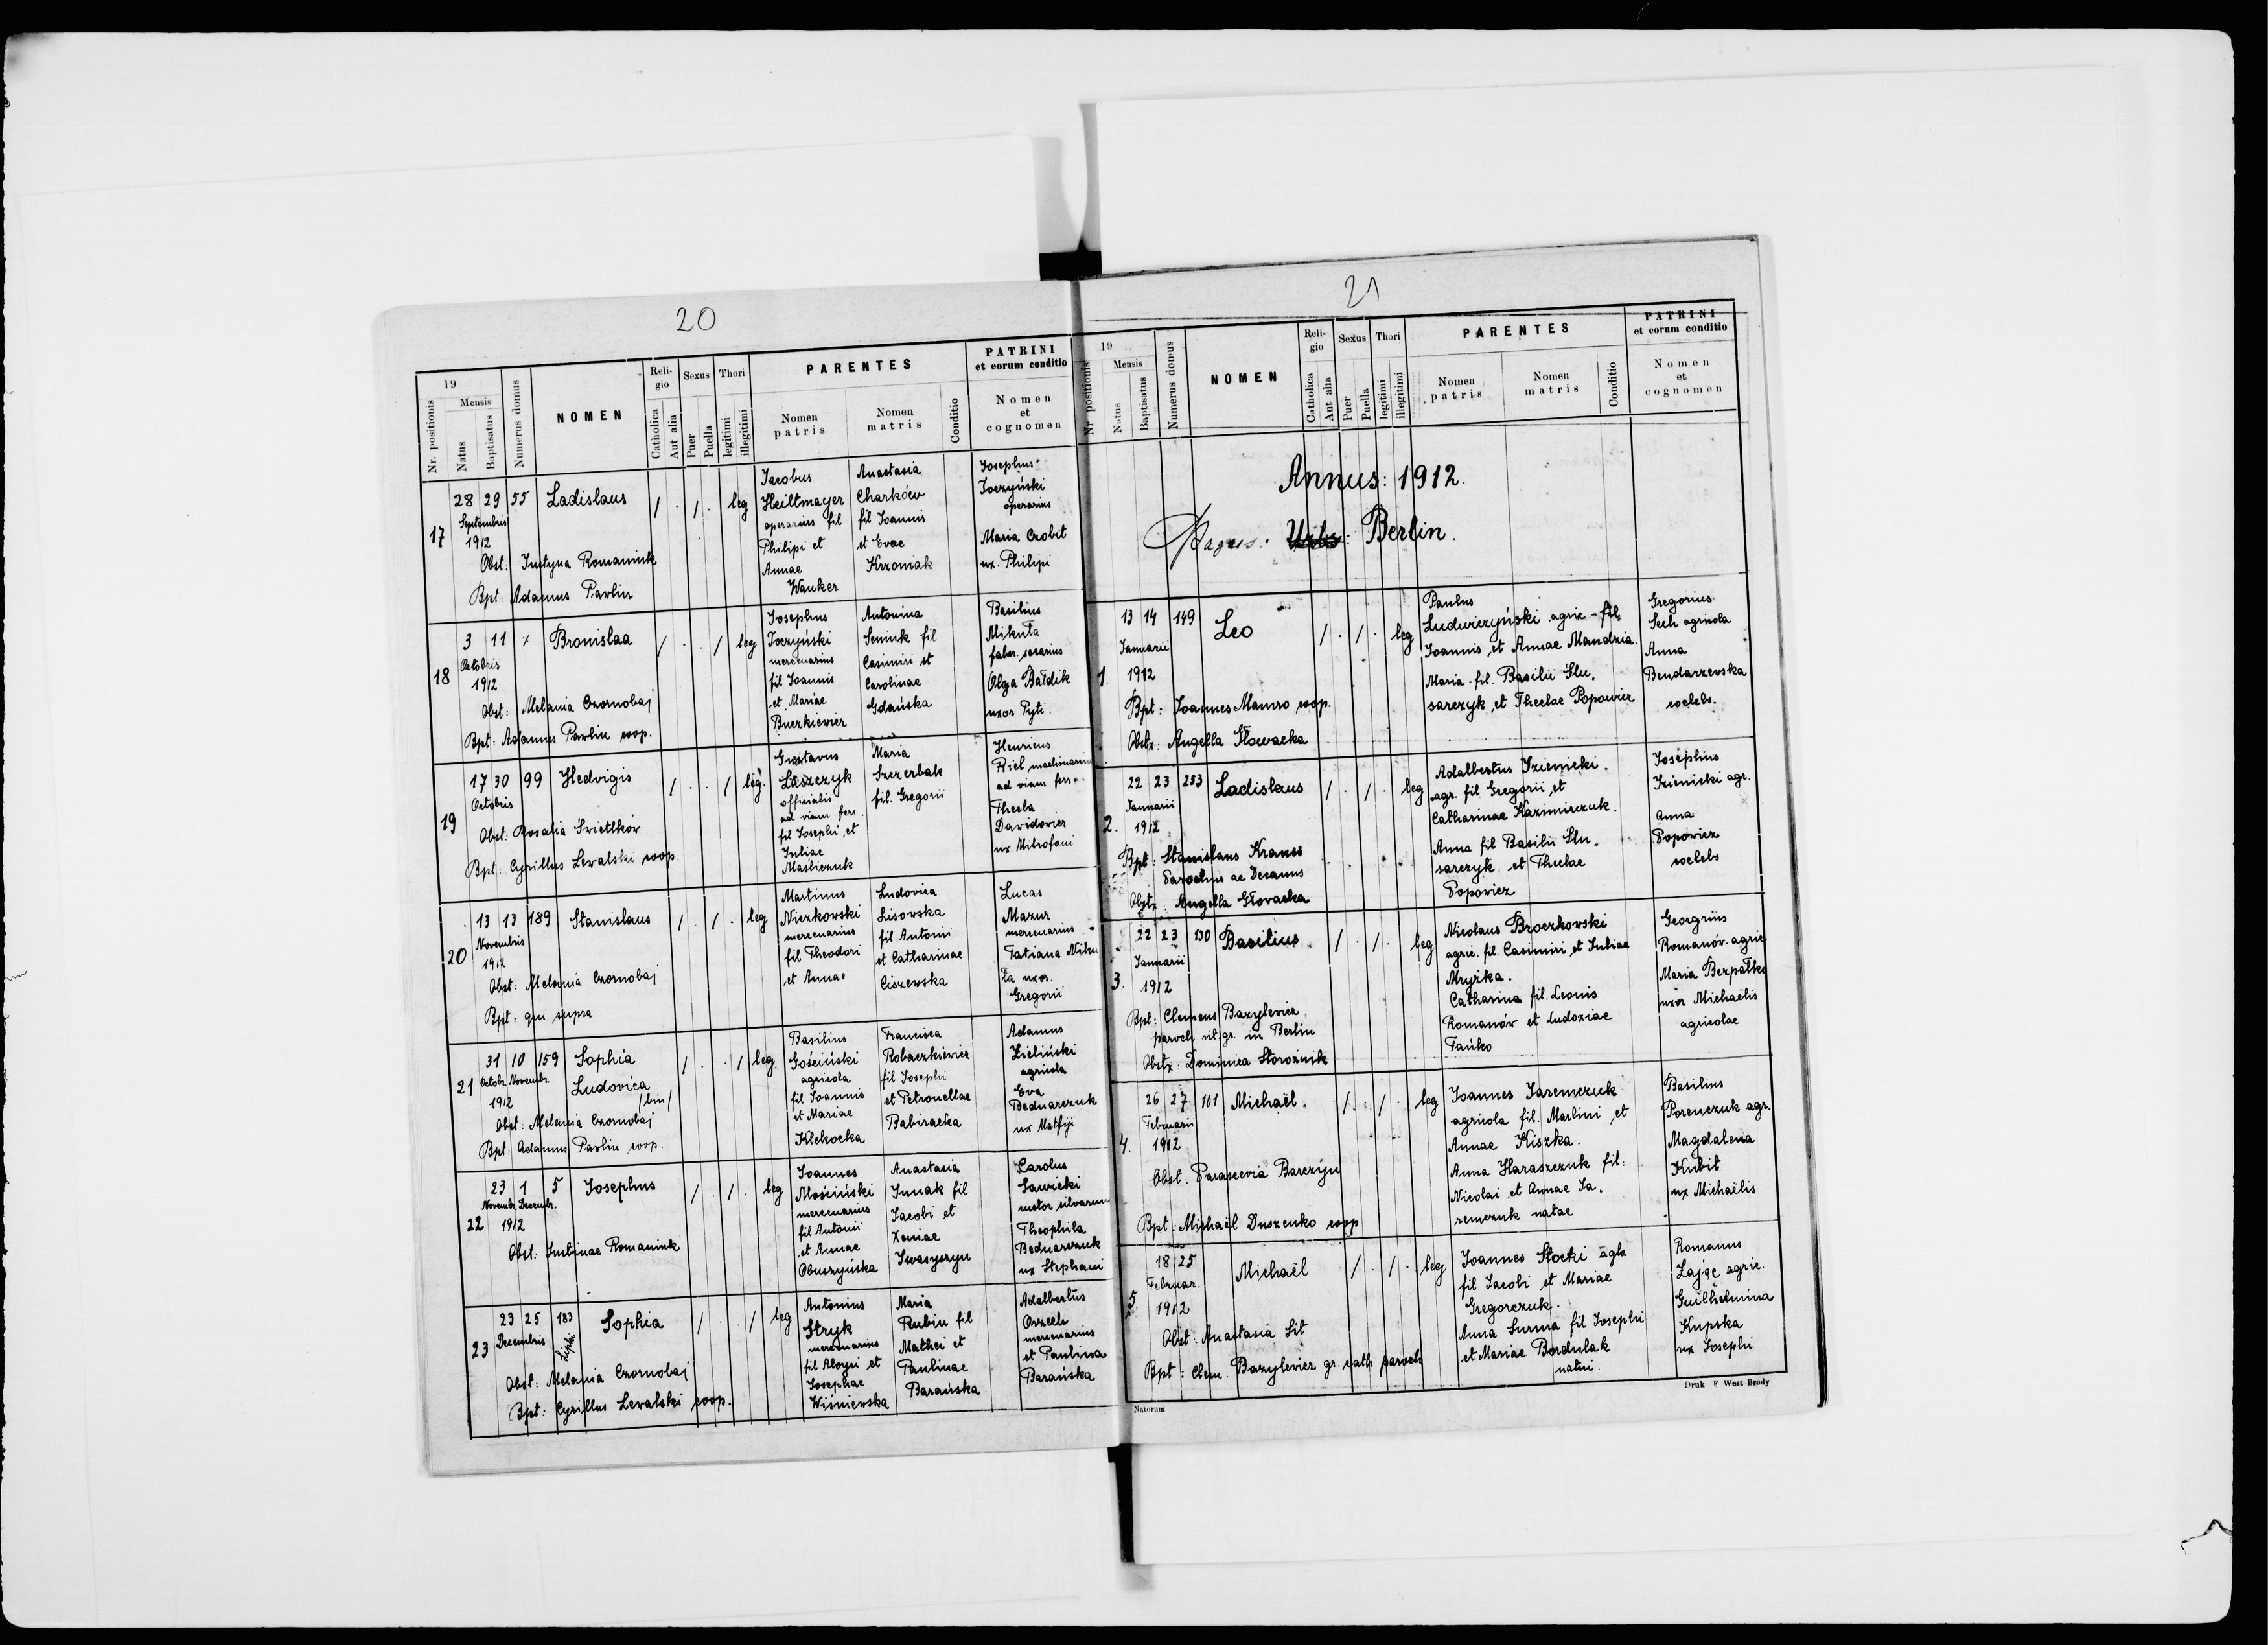 20
19
Nr. positionis
Mensis
Natus
Baptisatus
Numerus domus
NOMEN
Reli-
gio
Catholica
Aut alia
Sexus
Puer
Puella
Thori
legitimi
illegitimi
PARENTES
Nomen
patris
Nomen
matris
Conditio
PATRINI
et eorum conditio
Nomen
et
cognomen
17
28 29 55 Ladislaus / . / . leg
Septembris
1912
Obst: Justyna Romaniuk
Bpt: Adamus Pavlin
Jacobus
Heiltmayer
operarius fil
Philipi et
Annae
Wanker
Anastasia
Charków
fil Joannis
et Evae
Krzoniak
Josephus
Joczyński
operarius
Maria Czobit
ux. Philipi
18
3 11 Bronislaa / . . / leg
Octobris
1912
Obst: Melania Czornobaj
Bpt: Adamus Pavlin coop.
Josephus
Joczyński
mercenarius
fil Joannis
et Mariae
Buczkievicz
Antonina
Seniuk fil
Casimiri et
Carolinae
Gdańska
Basilius
Mikuła
faber serarius
Olga Bałdik
uxor Pyti.
19
17 30 99 Hedvigis / . . / leg.
Octobris
Obst: Rosalia Sviettkóv
Bpt: Cyrillus Levalski coop.
Gustavus
Łaszczyk
officialis
ad viam ferr.
fil Josephi et
Juliae
Maśliczuk
Maria
Szczerbak
fil. Gregorii
Henricus
Riel
ad viam ferr.
Thecla
Davidovicz
ux Mitrofani
20
13 13 189 Stanislaus / . / . leg
Novembris
1912
Obst: Melania Czornobaj
Bpt: qui supra
Martinus
Niczkowski
mercenarius
fil Theodori
et Annae
Ludovica
Lisovska
fil Antoni
et Catharinae
Ciszewska
Lucas
Mazur
mercenarius
Tatiana Miku
ła uxor.
Gregorii
21
31 10 159 Sophia / . . / leg.
Octobr. Novembr.
1912
Ludovica
/bin/
Obst: Melania Czornobaj
Bpt: Adamus Pavlin coop.
Basilius
Gościński
agricola
fil Joannis
et Mariae
Klekocka
Francisca
Robaczkievicz
fil Josephi
et Petronellae
Babiracka
Adamus
Zieliński
agricola
Eva
Bednarczuk
ux Matfiji
22
23 1 5 Josephus / . / . leg
Novembr. Decembr.
1912
Obst: Justinae Romaniuk
Joannes
Mościński
mercenarius
fil Antonii
et Annae
Obuszyńska
Anastasia
Junak fil
Jacobi et
Xeniae
Iwasyszyn
Carolus
Sawicki
custor silvarum
Theophila
Bednarczuk
ux Stephani
23
23 25 183 Sophia / . . / leg
Decembris
Obst: Melania Czornobaj
Bpt: Cyrillus Levalski coop.
Antonius
Stryk
mercenarius
fil Aloysi et
Josephae
Wiśniewska
Maria
Rubin fil
Mathei et
Paulinae
Barańska
Adalbertus
Orzech
mercenarius
et Paulina
Barańska
21
19
Nr positionis
Mensis
Natus
Baptisatus
Numerus domus
NOMEN
Reli-
gio
Catholica
Aut alia
Sexus
Puer
Puella
Thori
legitimi
illegitimi
PARENTES
Nomen
patris
Nomen
matris
Conditio
PATRINI
et eorum conditio
Nomen
et
cognomen
Annus: 1912.
Pagus: Urbs: Berlin.
1.
13 14 149 Leo / . / . leg
Januarii
1912
Bpt: Joannes Mamro coop.
Obstx: Angella Głowacka
Paulus
Ludwiczyński agric - fil,
Joannis, et Annae Mandzia.
Maria fil. Basilii Ślu,
sarczyk, et Theclae Popowicz
Gregorius
Sech agricola
Anna
Bendarzevska
coelebs.
2.
22 23 253 Ladislaus / . / . leg
Januarii
1912
Bpt: Stanislaus Kranss
Parochus ac Decanus
Obstx: Angella Głovacka
Adalbertus Izienicki.
agr. fil Gregorii, et
Catharinae Kazimirczuk.
Anna fil Basilii Ślu,
sarczyk et Theclae
Popovicz
Josephus
Izienicki agr.
Anna
Popovicz
coelebs
3.
22 23 130 Basilius. / . / . leg
Januarii
1912
Bpt: Clemens Bazylevicz
paroch rit. gr. in Berlin
Obstx: Dominica Storożnik
Nicolaus Broczkovski
agric. fil. Casimiri, et Juliae
Mryżka.
Catharina fil. Leonis
Romanóv et Eudoxiae
Tańko
Georgius
Romanóv agric
Maria Bezpałko
uxor Michaëlis
agricolae
4.
26 27 101 Michaël. / . / . leg
Februarii
1912
Obst. Parascevia Barczyn
Bpt: Michaël Duszenko coop
Joannes Jaremczuk
agricola fil. Martini, et
Annae Kiszka.
Anna Haraszczuk fil:
Nicolai et Annae Ja,
remczuk natae
Basilius
Porenczuk agr.
Magdalena
Kubit
ux Michaëlis
5
18 25 Michaël / . / . leg
Februar.
1912
Obst: Anastasia Sit
Bpt: Clem. Bazylevicz gr. cath paroch
Joannes Stocki agla
fil Jacobi et Mariae
Gregorczuk.
Anna Surma fil Josephi
et Mariae Bordulak
natui.
Romanus
Zając agric.
Guilhelmina
Kupska
ux Josephi
Natorum
Druk F West Brody